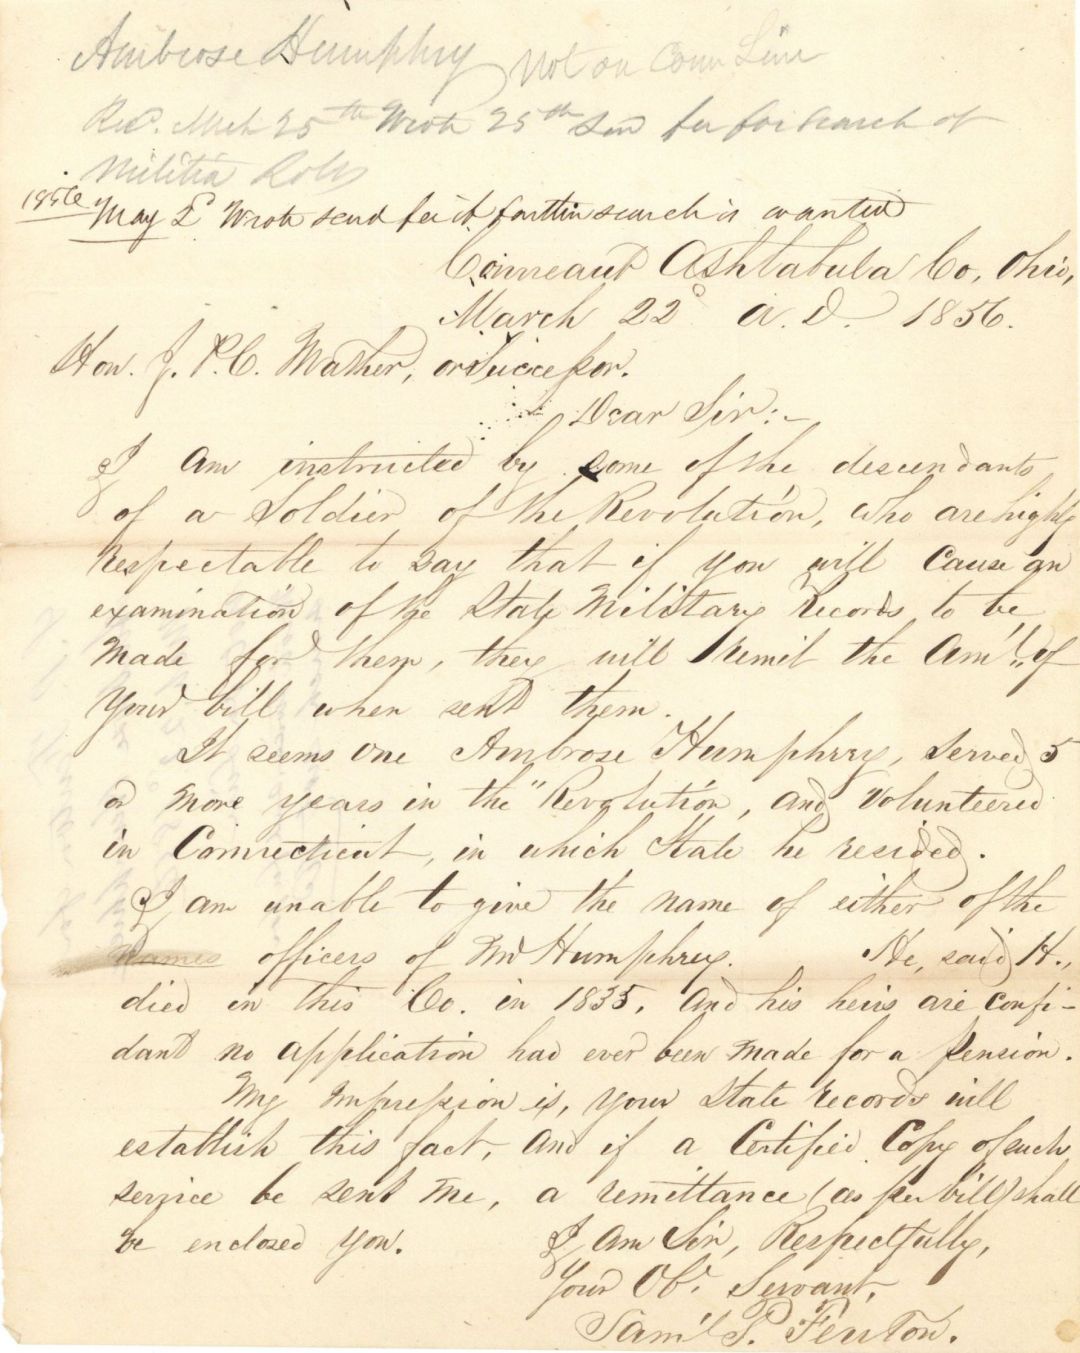 Ambrose Humphry Not on Conn Line
Rec. Mch 25th Wrote 25th Send fee for search of
Militia Rolls
1856 May 2d Wrote send fee if further search is wanted
Conneaut Ashtabula Co, Ohio,
March 22d A.D. 1856.
Hon. J. P. C. Mather, or Successor.
Dear Sir:-
I am instructed by some of the descendants
of a Soldier of the Revolution, who are highly
respectable to say that if you will cause an
examination of the State Military Records to be
made for them, they will remit the Am't. of
your bill when sent them.
It seems one Ambrose Humphrey, served 5
or more years in the "Revolution, and volunteered
in Connecticut, in which State he resided.
I am unable to give the name of either of the
names officers of Mr Humphrey. He, said H.,
died in this Co. in 1835. And his heirs are confi-
dant no application had ever been made for a Pension.
My impression is, your State records will
establish this fact, and if a Certified Copy of such
service be sent me, a remittance (as per bill) shall
be enclosed you. I am Sir, Respectfully,
Your Obt. Servant,
Sam'l P. Fenton.